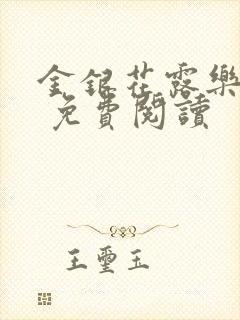 金銀花露樂
免費閱讀
王璽玉